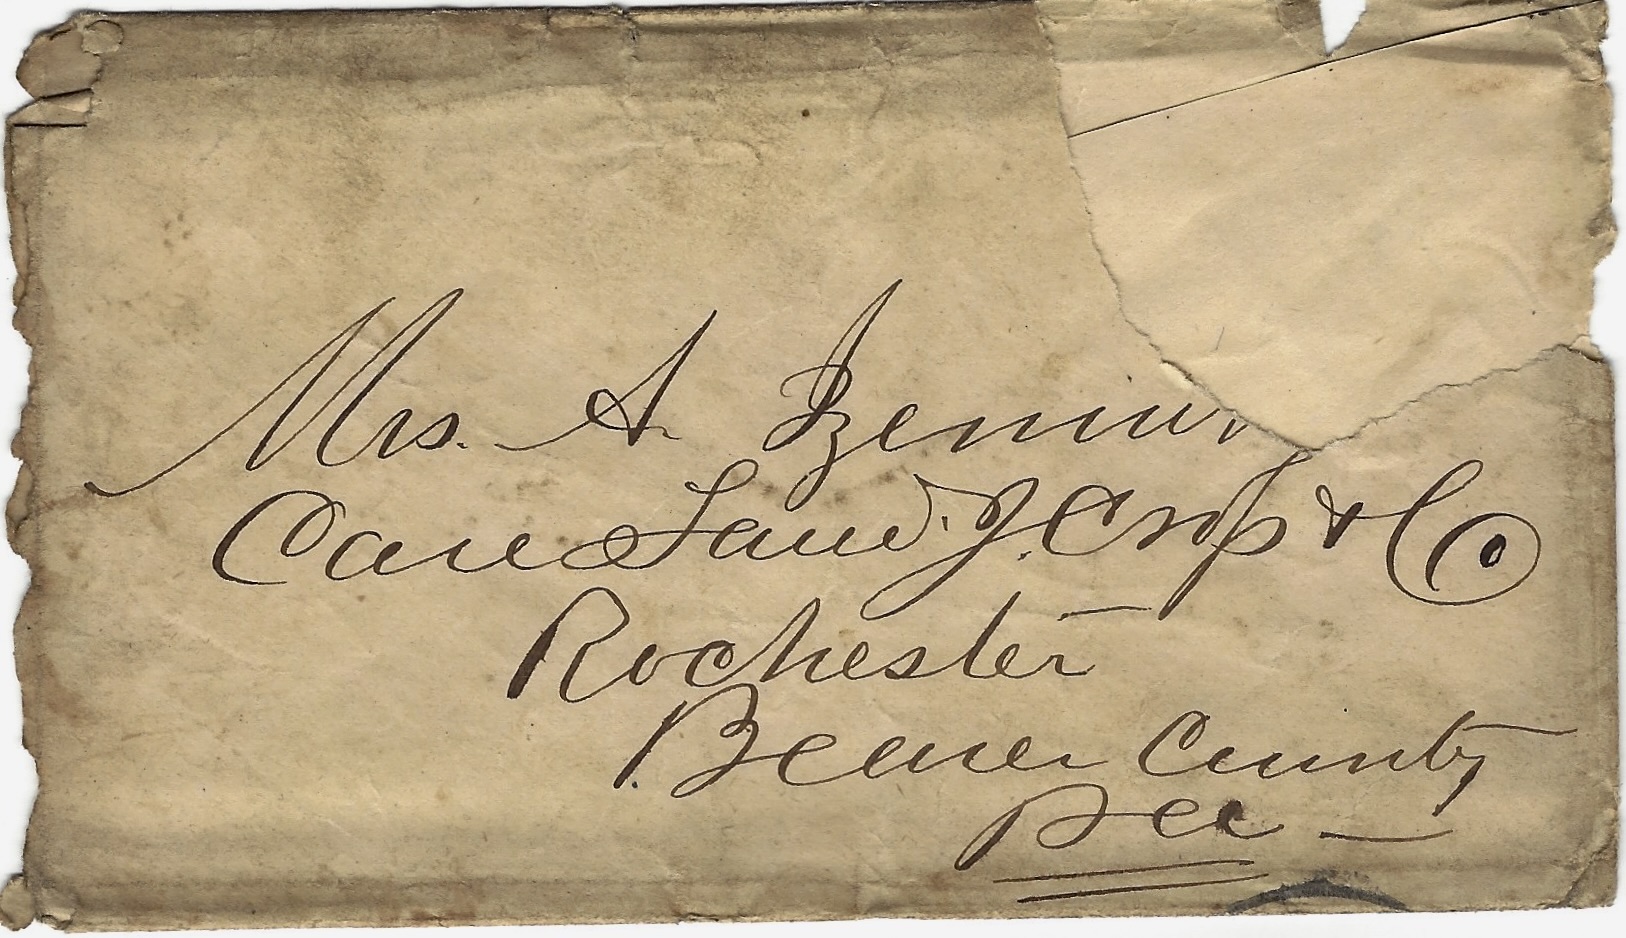 Mrs. A.
Care Saml. J. Cross & Co
Rochester
Beaver County
Pa